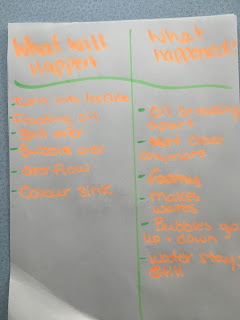 What will
happen
- Turn into
Floating oil
- Spill over
- Bubble over
- Over flow
- Colour sinks
What
happened?
- Oil breaking
apart
- Not clear
anymore
- Foamy
- makes
waves
- Bubbles go
up + down
- Water stays
still